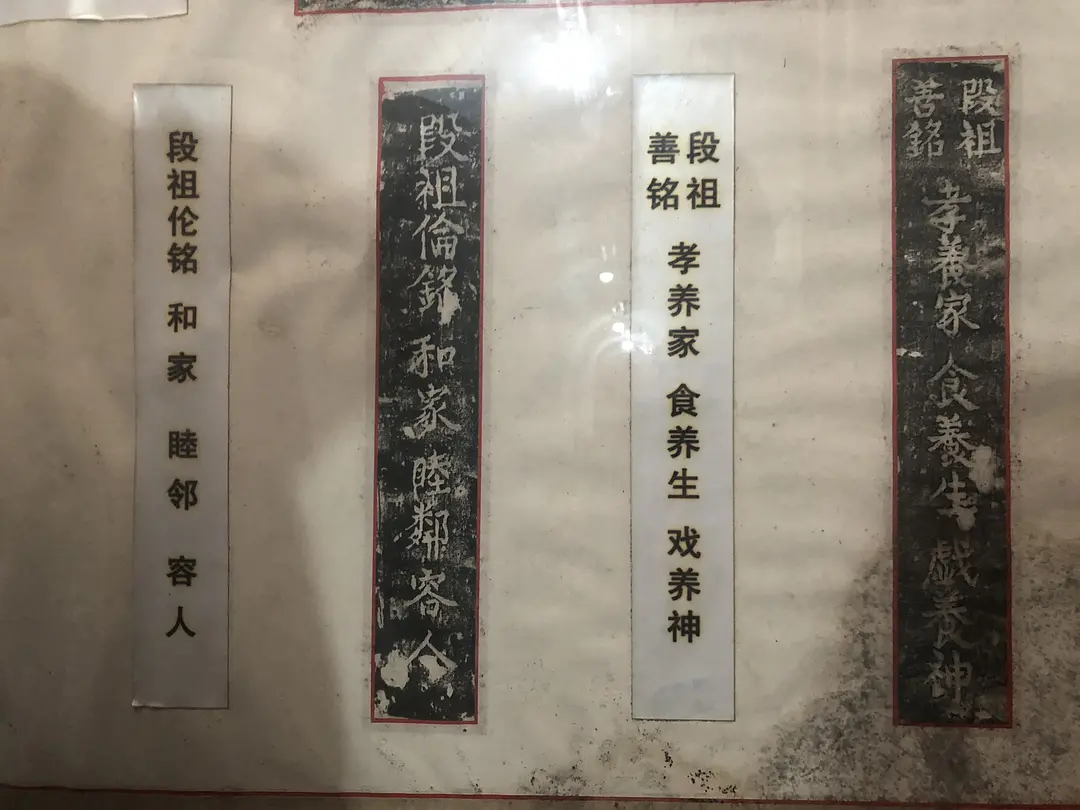 段祖善銘 孝養家 食養生 戯养神
段祖善铭 孝养家 食养生 戏养神
段祖倫銘 和家 睦鄰 容人
段祖伦铭 和家 睦邻 容人